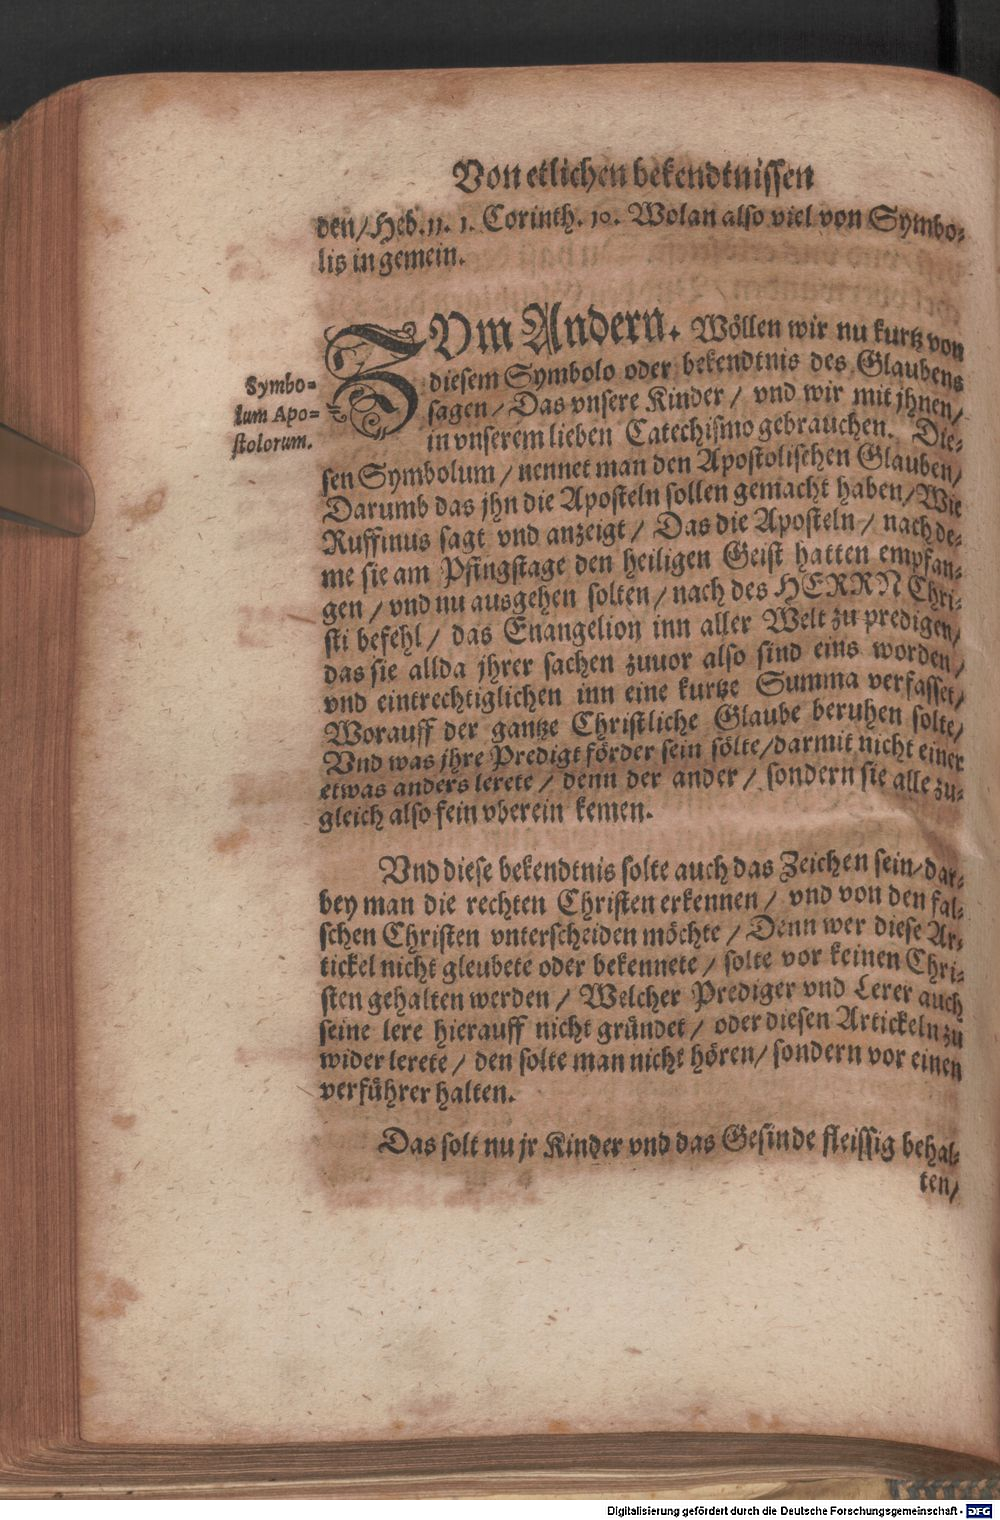 Von etlichen bekendtnissen
den/Heb. 11. 1. Corinth. 10. Wolan also viel von Symbo-
lis in gemein.
Symbo-
lum Apo-
stolorum.
ZVm Andern. Wöllen wir nu kurtz von
diesem Symbolo oder bekendtnis des Glaubens
sagen/ Das vnsere Kinder / vnd wir mit jhnen/
in vnserem lieben Catechismo gebrauchen. Die-
sen Symbolum / nennet man den Apostolischen Glauben/
Darumb das jhn die Aposteln sollen gemacht haben/Wie
Ruffinus sagt vnd anzeigt / Das die Aposteln / nach de-
me sie am Pfingstage den heiligen Geist hatten empfan-
gen / vnd nu ausgehen solten / nach des HERRN Chri-
sti befehl / das Euangelion inn aller Welt zu predigen/
das sie allda jhrer sachen zuuor also sind eins worden /
vnd eintrechtiglichen inn eine kurtze Summa verfasset/
Worauff der gantze Christliche Glaube beruhen solte/
Vnd was jhre Predigt förder sein sölte/darmit nicht einer
etwas anders lerete / denn der ander / sondern sie alle zu-
gleich also fein vberein kemen.
Vnd diese bekendtnis solte auch das Zeichen sein/dar-
bey man die rechten Christen erkennen / vnd von den fal-
schen Christen vnterscheiden möchte / Denn wer diese Ar-
tickel nicht gleubete oder bekennete / solte vor keinen Chri-
sten gehalten werden / Welcher Prediger vnd Lerer auch
seine lere hierauff nicht gründet / oder diesen Artickeln zu
wider lerete / den solte man nicht hören/ sondern vor einen
verführer halten.
Das solt nu jr Kinder vnd das Gesinde fleissig behal-
ten/
Digitalisierung gefördert durch die Deutsche Forschungsgemeinschaft - DFG